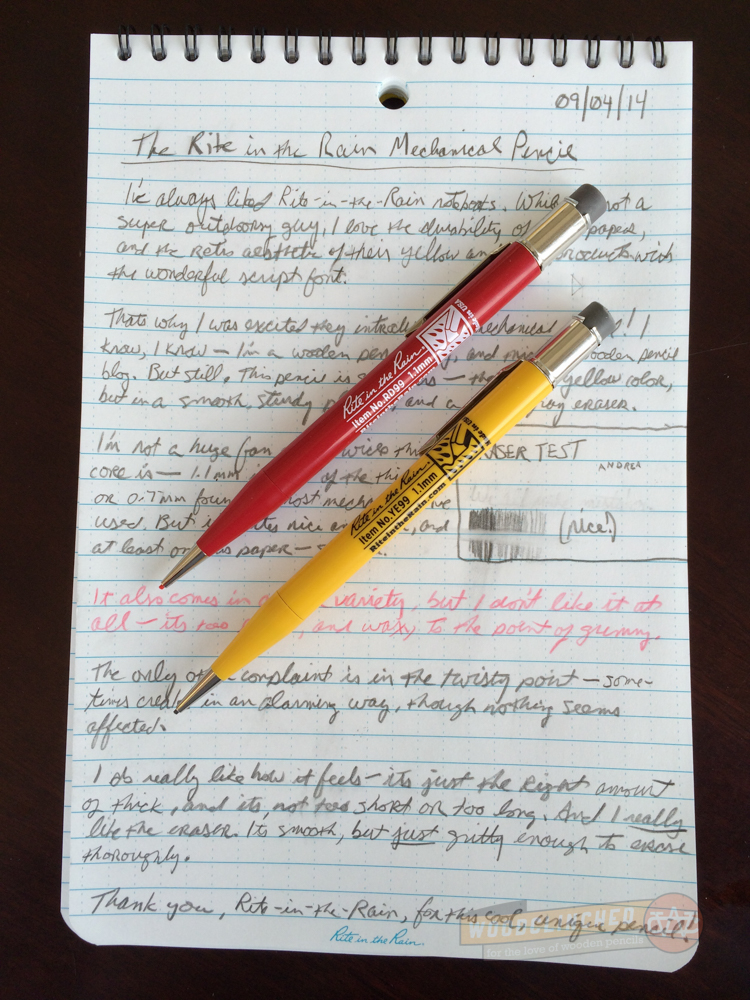 09/04/14
The Rite in the Rain Mechanical Pencil
I've always liked Rite-in-the-Rain notebooks. not a
super outdoorsy guy, I love the durability of paper,
and the retro aesthetic of their yellow products with
the wonderful script font.
Thats why I was excited they mechanical I
know, I know — I'm a wooden and wooden pencil
blog. But still. This pencil is yellow color,
but in a smooth, sturdy and a gray eraser.
I'm not a huge fan
core is — 1.1mm of the
or 0.7mm
used. But nice and
at least on this paper —
ERASER TEST
ANDREA
(nice!)
It also comes in a variety, but I don't like it at
all — its too and waxy, to the point of grimmy.
The only complaint is in the twisty point — some-
times in an alarming way, though nothing seems
affected.
I do really like how it feels — its just the right amount
of thick, and its not too short or too long. And I really
like the eraser. Its smooth, but just gritty enough to erase
thoroughly.
Thank you, Rite-in-the-Rain, for this cool, unique pencil.
Rite in the Rain
Item No. RD99 1.1mm
RiteintheRain.com
Made in USA
Rite in the Rain
Item No. YE99 1.1mm
RiteintheRain.com
Rite in the Rain
WOODCLINCHED
for the love of wooden pencils